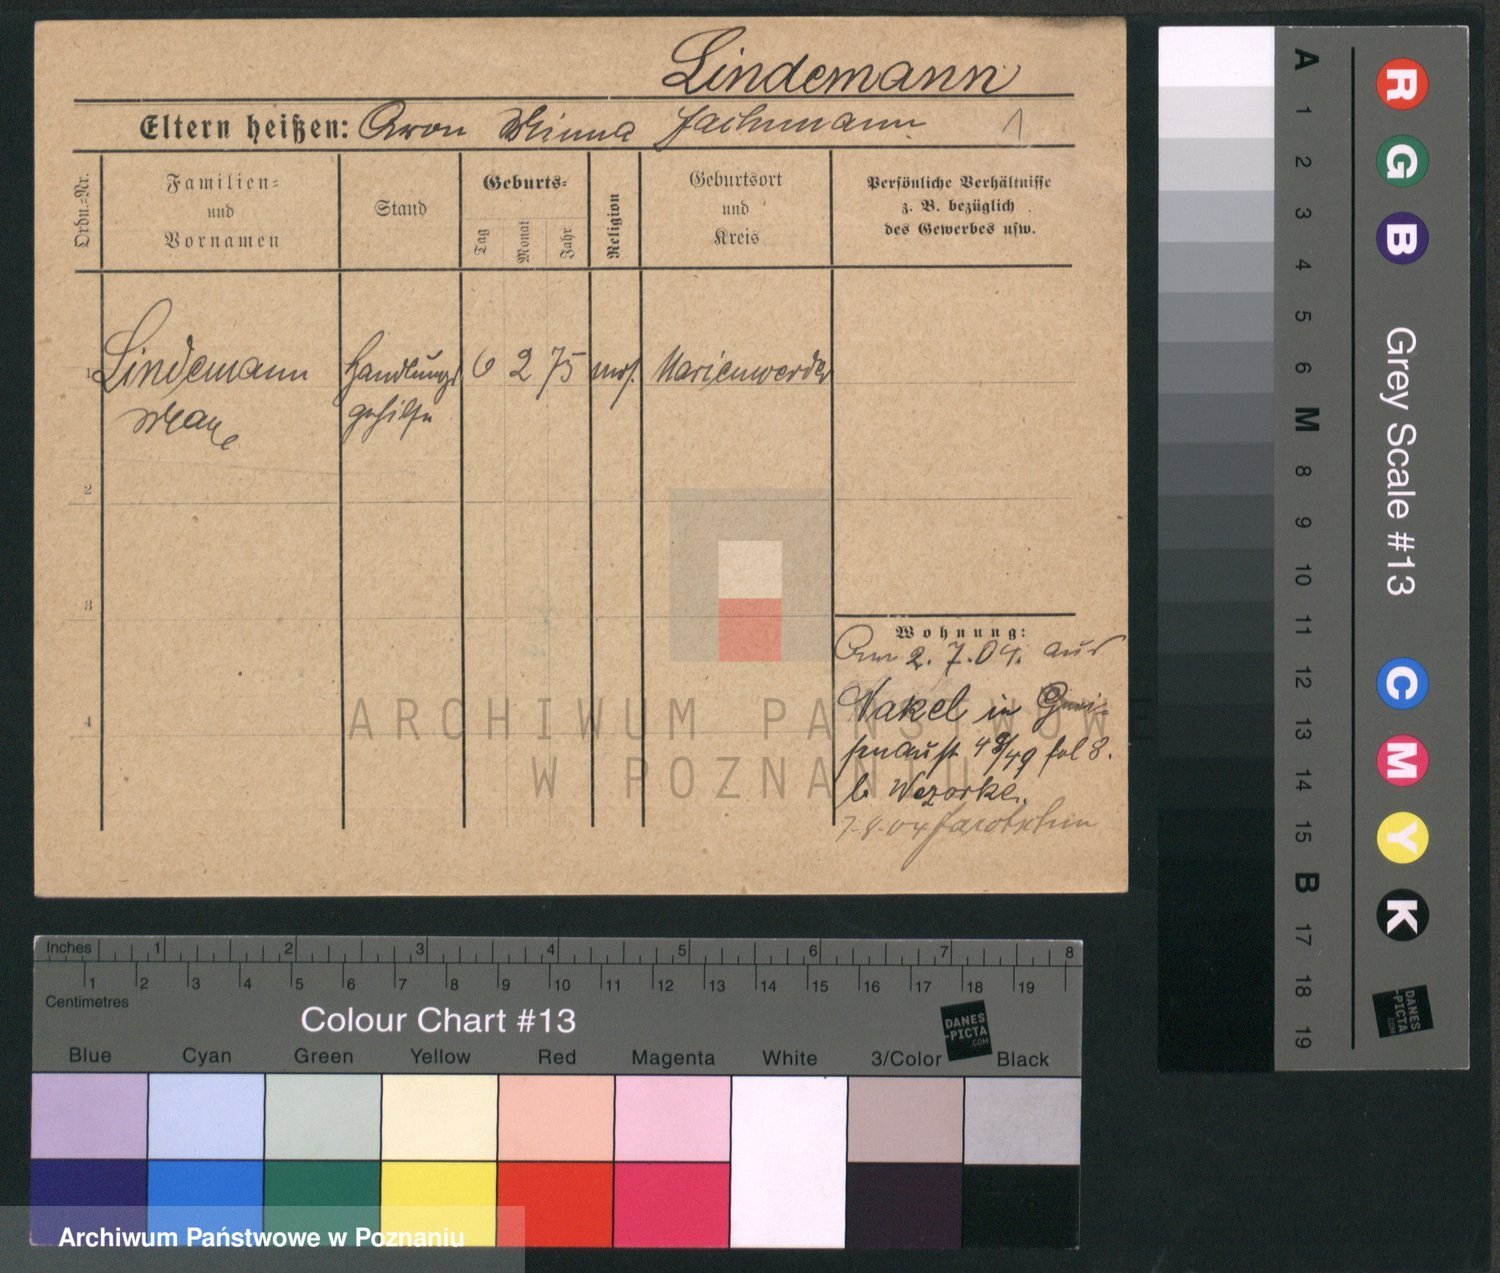 Lindemann
Eltern heißen: Aron Minna Jachmann 1
Ordn.-Nr.
Familien-
und
Vornamen
Stand
Geburts-
Tag
Monat
Jahr
Religion
Geburtsort
und
Kreis
Persönliche Verhältnisse
z. B. bezüglich
des Gewerbes usw.
1 Lindemann Handlungs 6 2 75 mos. Marienwerder
Max gehilfe
2
3
4
Wohnung:
Am 2. 7. 04. aus
Nakel in Gnei-
senaustr 48/49 fol 8.
b Wezorke.
7.9.04 Jarotschin
ARCHIWUM PAŃSTWOWE
W POZNANIU
A 1 2 3 4 5 6 M 8 9 10 11 12 13 14 15 B 17 18 19
R G B Grey Scale #13 C M Y K
DANES
-PICTA
.COM
Inches 1 2 3 4 5 6 7 8
1 2 3 4 5 6 7 8 9 10 11 12 13 14 15 16 17 18 19
Centimetres
Colour Chart #13
DANES
-PICTA
.COM
Blue Cyan Green Yellow Red Magenta White 3/Color Black
Archiwum Państwowe w Poznaniu